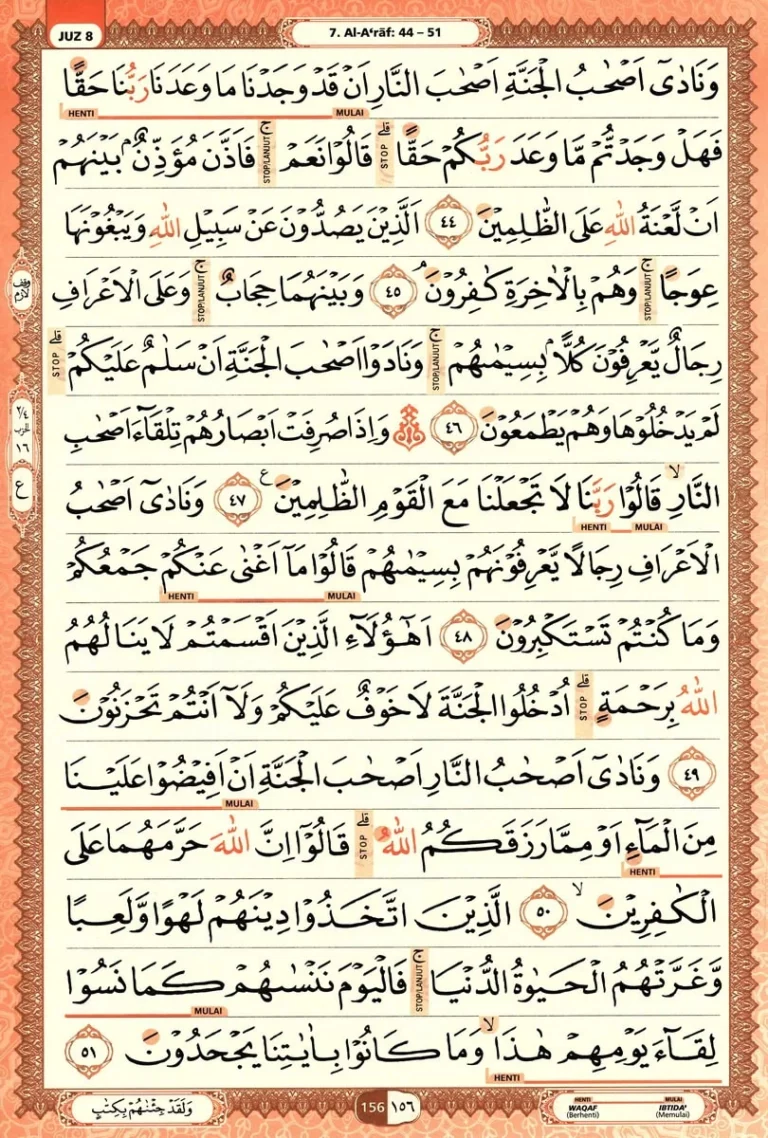 JUZ 8
7. Al-A‘rāf: 44 – 51
وَنَادٰٓى اَصْحٰبُ الْجَنَّةِ اَصْحٰبَ النَّارِ اَنْ قَدْ وَجَدْنَا مَا وَعَدَنَا رَبُّنَا حَقًّا
HENTI MULAI
فَهَلْ وَجَدْتُّمْ مَّا وَعَدَ رَبُّكُمْ حَقًّا ۗ قَالُوْا نَعَمْ ۚ فَاَذَّنَ مُؤَذِّنٌۢ بَيْنَهُمْ
STOP STOP/LANJUT
اَنْ لَّعْنَةُ اللّٰهِ عَلَى الظّٰلِمِيْنَ ٤٤ الَّذِيْنَ يَصُدُّوْنَ عَنْ سَبِيْلِ اللّٰهِ وَيَبْغُوْنَهَا
عِوَجًا ۚ وَهُمْ بِالْاٰخِرَةِ كٰفِرُوْنَ ۘ ٤٥ وَبَيْنَهُمَا حِجَابٌ ۚ وَعَلَى الْاَعْرَافِ
STOP/LANJUT STOP/LANJUT
وقف لازم
رِجَالٌ يَّعْرِفُوْنَ كُلًّا ۢ بِسِيْمٰىهُمْ ۚ وَنَادَوْا اَصْحٰبَ الْجَنَّةِ اَنْ سَلٰمٌ عَلَيْكُمْ ۗ
STOP/LANJUT STOP
لَمْ يَدْخُلُوْهَا وَهُمْ يَطْمَعُوْنَ ٤٦ ۞ وَاِذَا صُرِفَتْ اَبْصَارُهُمْ تِلْقَاۤءَ اَصْحٰبِ
٢/٤ الحزب ١٦
النَّارِ ۙ قَالُوْا رَبَّنَا لَا تَجْعَلْنَا مَعَ الْقَوْمِ الظّٰلِمِيْنَ ࣖ ٤٧ وَنَادٰٓى اَصْحٰبُ
ع
HENTI MULAI
الْاَعْرَافِ رِجَالًا يَّعْرِفُوْنَهُمْ بِسِيْمٰىهُمْ قَالُوْا مَآ اَغْنٰى عَنْكُمْ جَمْعُكُمْ
HENTI MULAI
وَمَا كُنْتُمْ تَسْتَكْبِرُوْنَ ٤٨ اَهٰٓؤُلَاۤءِ الَّذِيْنَ اَقْسَمْتُمْ لَا يَنَالُهُمُ
اللّٰهُ بِرَحْمَةٍ ۗ اُدْخُلُوا الْجَنَّةَ لَا خَوْفٌ عَلَيْكُمْ وَلَآ اَنْتُمْ تَحْزَنُوْنَ
STOP
٤٩ وَنَادٰٓى اَصْحٰبُ النَّارِ اَصْحٰبَ الْجَنَّةِ اَنْ اَفِيْضُوْا عَلَيْنَا
MULAI
مِنَ الْمَاۤءِ اَوْ مِمَّا رَزَقَكُمُ اللّٰهُ ۗ قَالُوْٓا اِنَّ اللّٰهَ حَرَّمَهُمَا عَلَى
STOP
HENTI
الْكٰفِرِيْنَ ۙ ٥٠ الَّذِيْنَ اتَّخَذُوْا دِيْنَهُمْ لَهْوًا وَّلَعِبًا
وَّغَرَّتْهُمُ الْحَيٰوةُ الدُّنْيَا ۚ فَالْيَوْمَ نَنْسٰىهُمْ كَمَا نَسُوْا
STOP/LANJUT
MULAI
لِقَاۤءَ يَوْمِهِمْ هٰذَا ۙ وَمَا كَانُوْا بِاٰيٰتِنَا يَجْحَدُوْنَ ٥١
HENTI
وَلَقَدْ جِئْنٰهُمْ بِكِتٰبٍ
156 ١٥٦
HENTI MULAI
WAQAF IBTIDA'
(Berhenti) (Memulai)